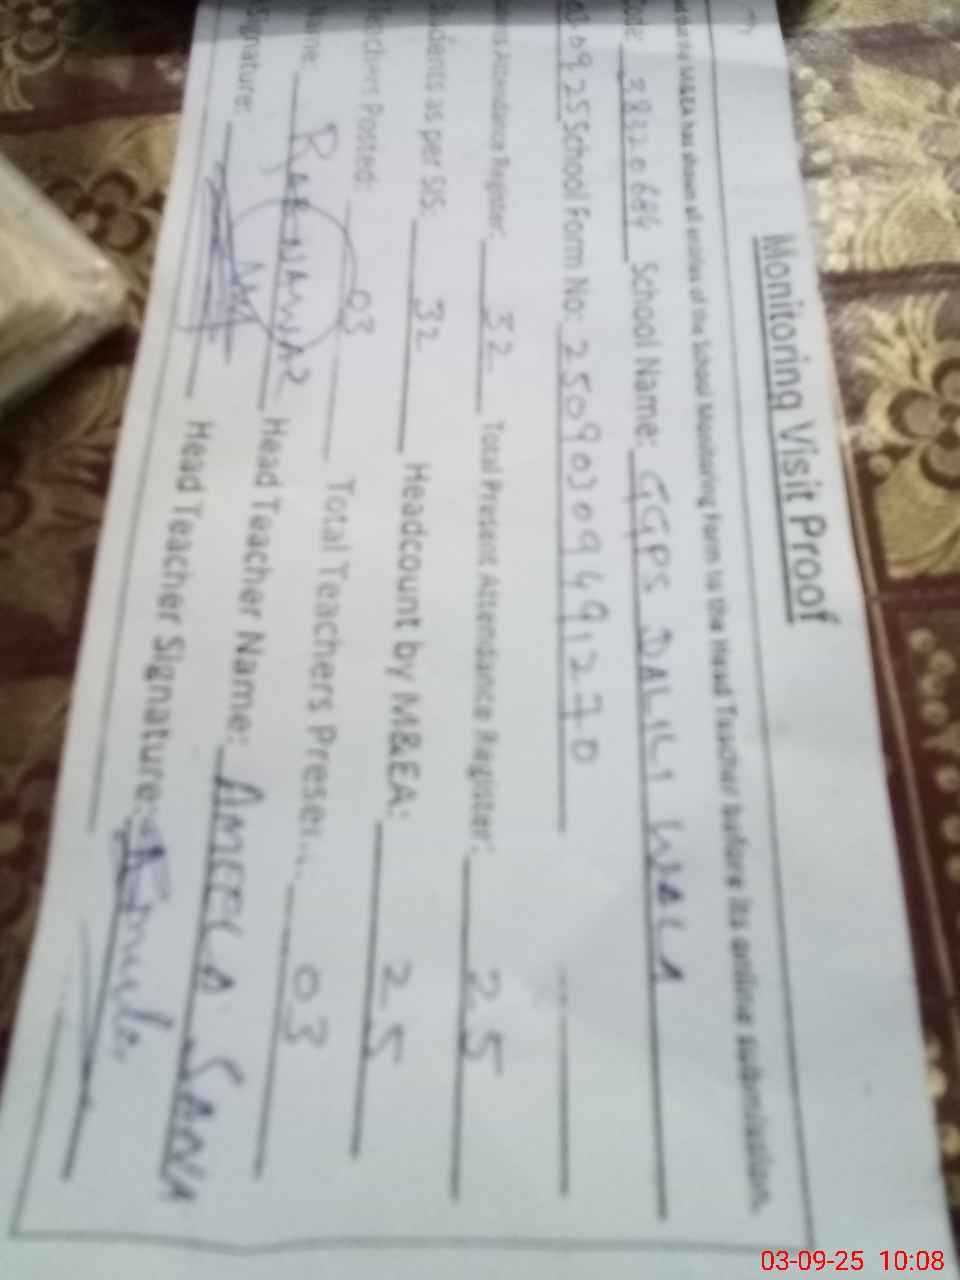 Monitoring Visit Proof
that the M&EA has shown all entries of the School Monitoring Form to the Head Teacher before its online submission.
Code: 38320684 School Name: GGPS DALILI WALA
03-09-25 School Form No: 25090309491270
Attendance Register: 32 Total Present Attendance Register: 25
Students as per SIS: 32 Headcount by M&EA: 25
Teachers Posted: 03 Total Teachers Present: 03
Name: RAB NAWAZ Head Teacher Name: AMEELA SANA
Signature: Head Teacher Signature:
03-09-25 10:08